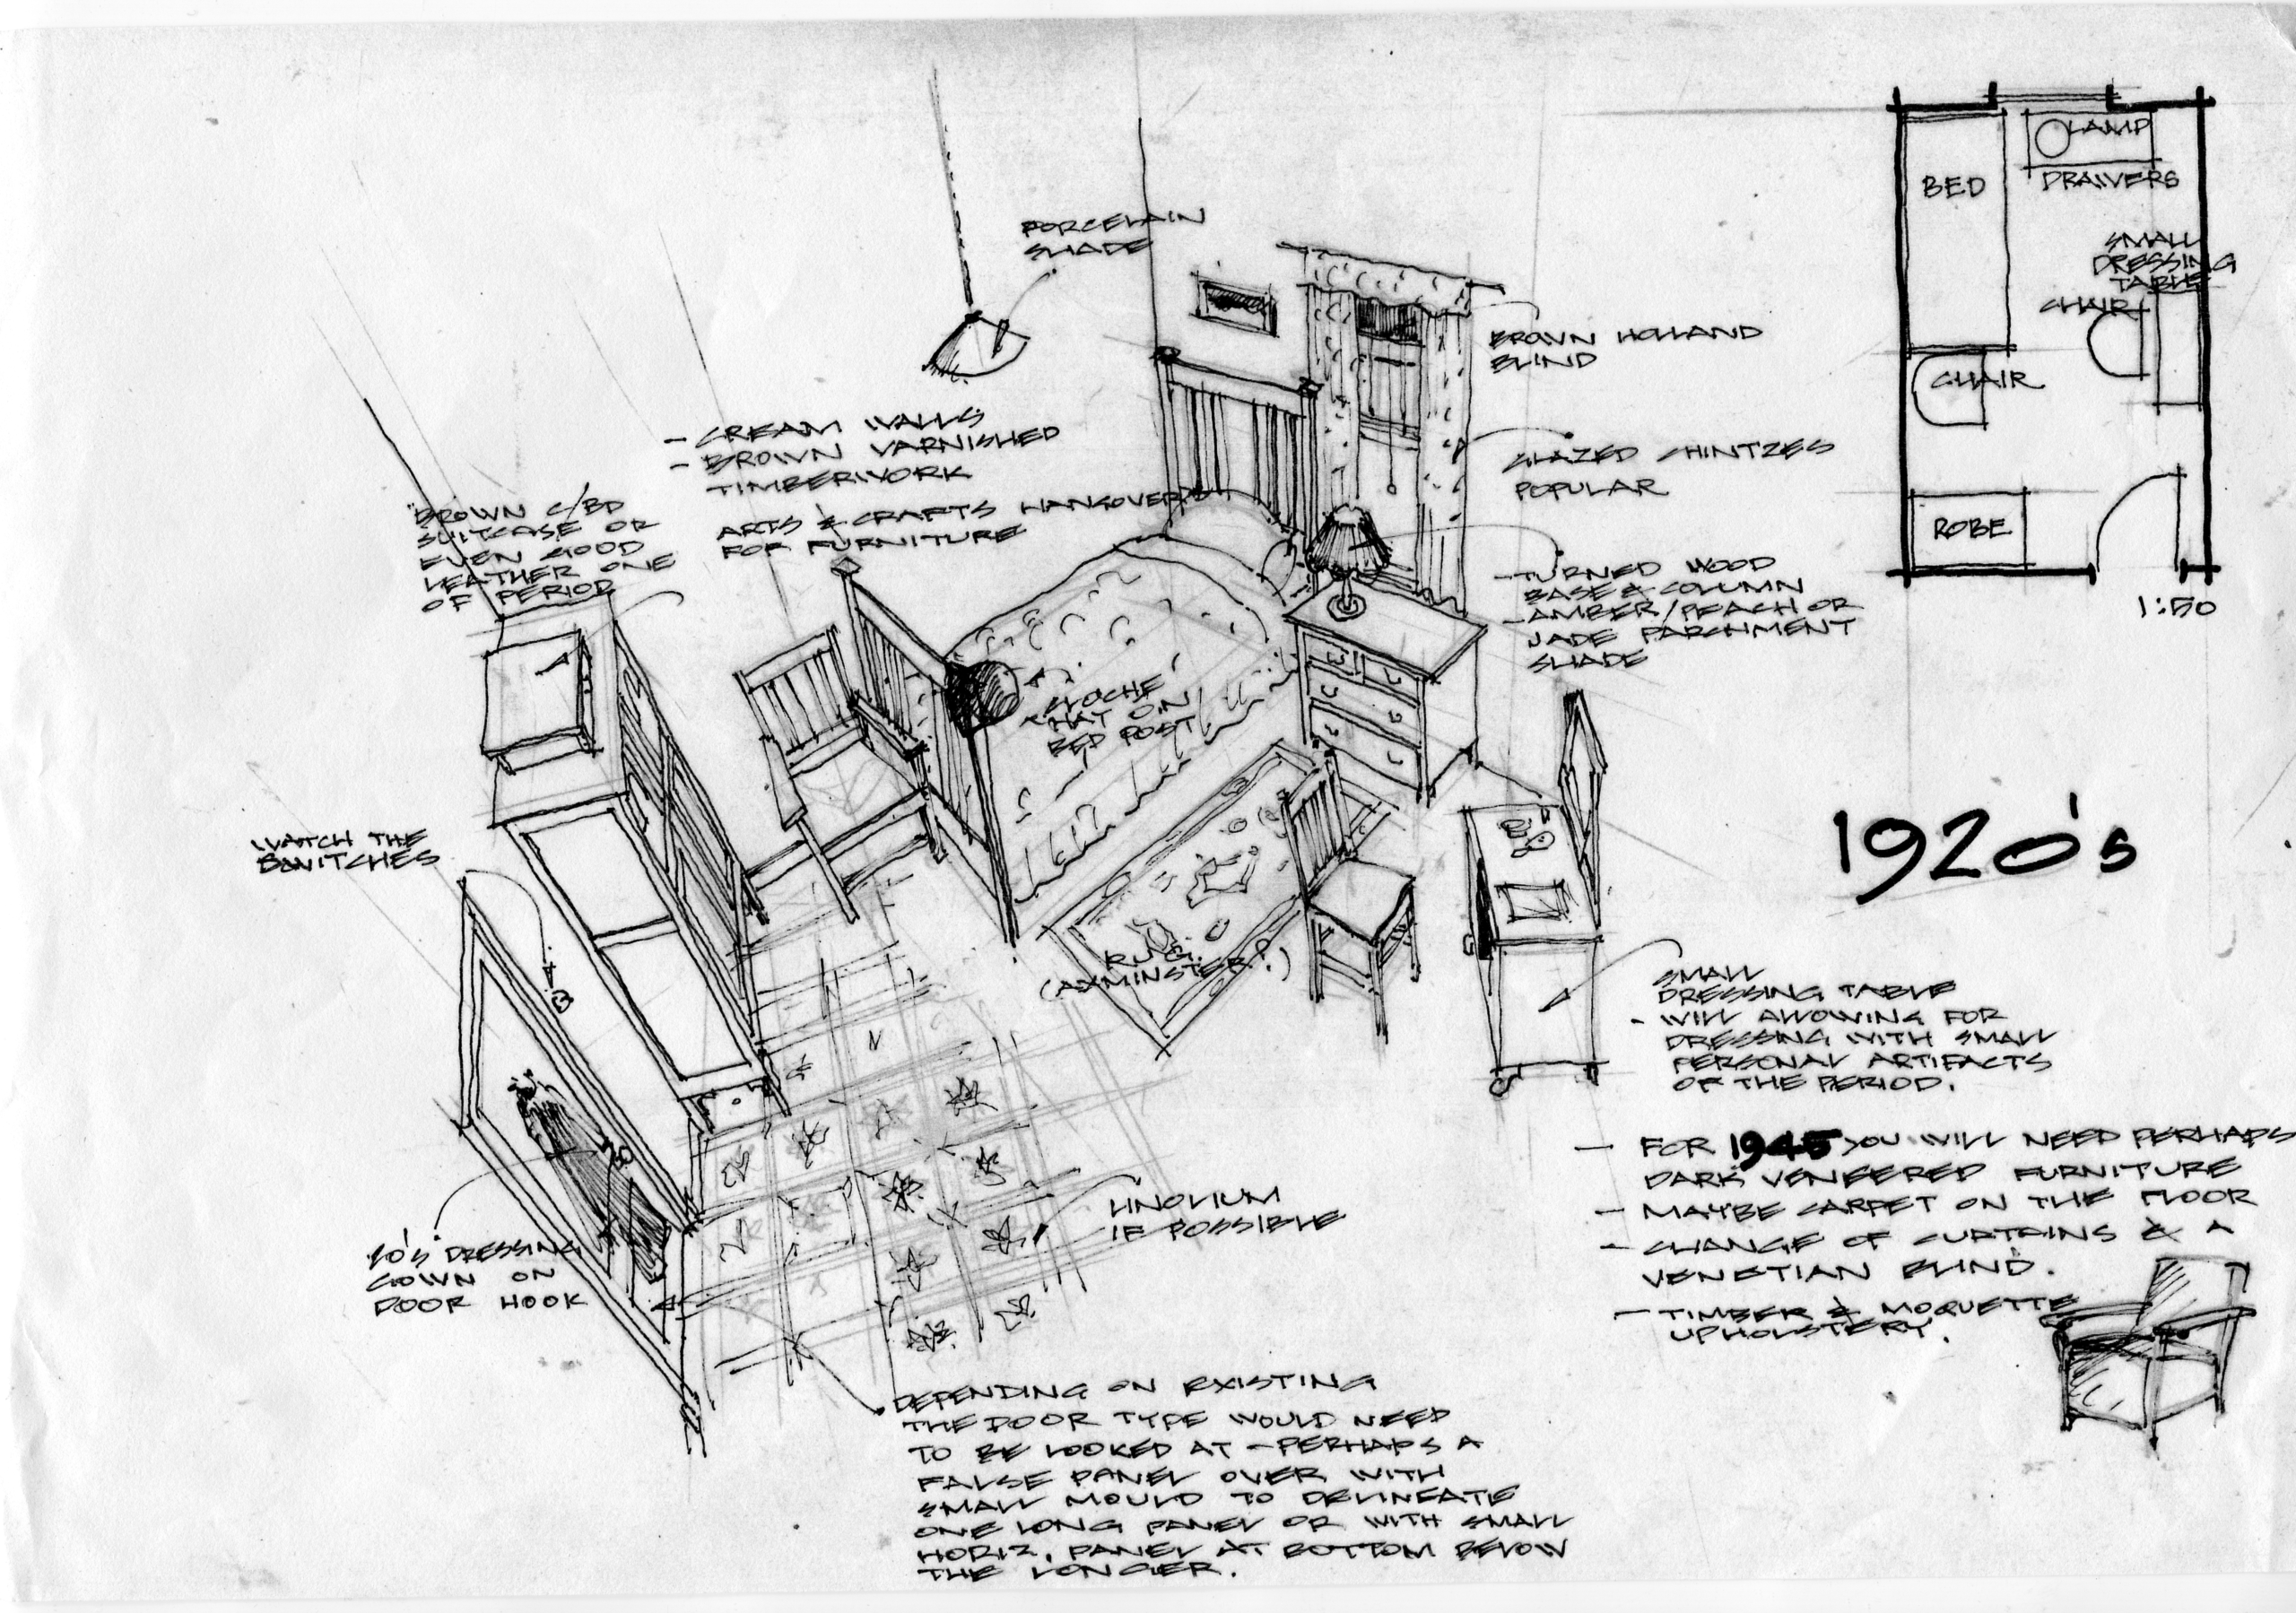 PORCELAIN
SHADE
- CREAM WALLS
- BROWN VARNISHED
TIMBERWORK
ARTS & CRAFTS HANGOVER
FOR FURNITURE
BROWN C/BD
SUITCASE OR
EVEN GOOD
LEATHER ONE
OF PERIOD
BROWN HOLLAND
BLIND
GLAZED CHINTZES
POPULAR
- TURNED WOOD
BASE & COLUMN
- AMBER/PEACH OR
JADE PARCHMENT
SHADE
LAMP
BED
DRAWERS
SMALL
DRESSING
TABLE
CHAIR
CHAIR
ROBE
1:50
'CLOCHE'
HAT ON
BED POST
WATCH THE
SWITCHES
1920's
RUG
(AXMINSTER?)
SMALL
DRESSING TABLE
- WILL ALLOWING FOR
DRESSING WITH SMALL
PERSONAL ARTIFACTS
OF THE PERIOD.
- FOR 1945 YOU WILL NEED PERHAPS
DARK VENEERED FURNITURE
- MAYBE CARPET ON THE FLOOR
- CHANGE OF CURTAINS & A
VENETIAN BLIND.
- TIMBER & MOQUETTE
UPHOLSTERY.
LINOLIUM
IF POSSIBLE
20's DRESSING
GOWN ON
DOOR HOOK
DEPENDING ON EXISTING
THE DOOR TYPE WOULD NEED
TO BE LOOKED AT - PERHAPS A
FALSE PANEL OVER WITH
SMALL MOULD TO DELINEATE
ONE LONG PANEL OR WITH SMALL
HORIZ. PANEL AT BOTTOM BELOW
THE LONGER.